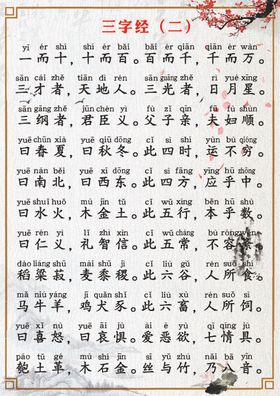 三字经（二）
yī ér shí shí ér bǎi bǎi ér qiān qiān ér wàn
一而十，十而百。百而千，千而万。
sān cái zhě tiān dì rén sān guāng zhě rì yuè xīng
三才者，天地人。三光者，日月星。
sān gāng zhě jūn chén yì fù zǐ qīn fū fù shùn
三纲者，君臣义。父子亲，夫妇顺。
yuē chūn xià yuē qiū dōng cǐ sì shí yùn bù qióng
曰春夏，曰秋冬。此四时，运不穷。
yuē nán běi yuē xī dōng cǐ sì fāng yìng hū zhōng
曰南北，曰西东。此四方，应乎中。
yuē shuǐ huǒ mù jīn tǔ cǐ wǔ xíng běn hū shù
曰水火，木金土。此五行，本乎数。
yuē rén yì lǐ zhì xìn cǐ wǔ cháng bù róng wěn
曰仁义，礼智信。此五常，不容紊。
dào liáng shū mài shǔ jì cǐ liù gǔ rén suǒ shí
稻粱菽，麦黍稷。此六谷，人所食。
mǎ niú yáng jī quǎn shǐ cǐ liù chù rén suǒ sì
马牛羊，鸡犬豕。此六畜，人所饲。
yuē xǐ nù yuē āi jù ài wù yù qī qíng jù
曰喜怒，曰哀惧。爱恶欲，七情具。
páo tǔ gé mù shí jīn sī yǔ zhú nǎi bā yīn
匏土革，木石金。丝与竹，乃八音。